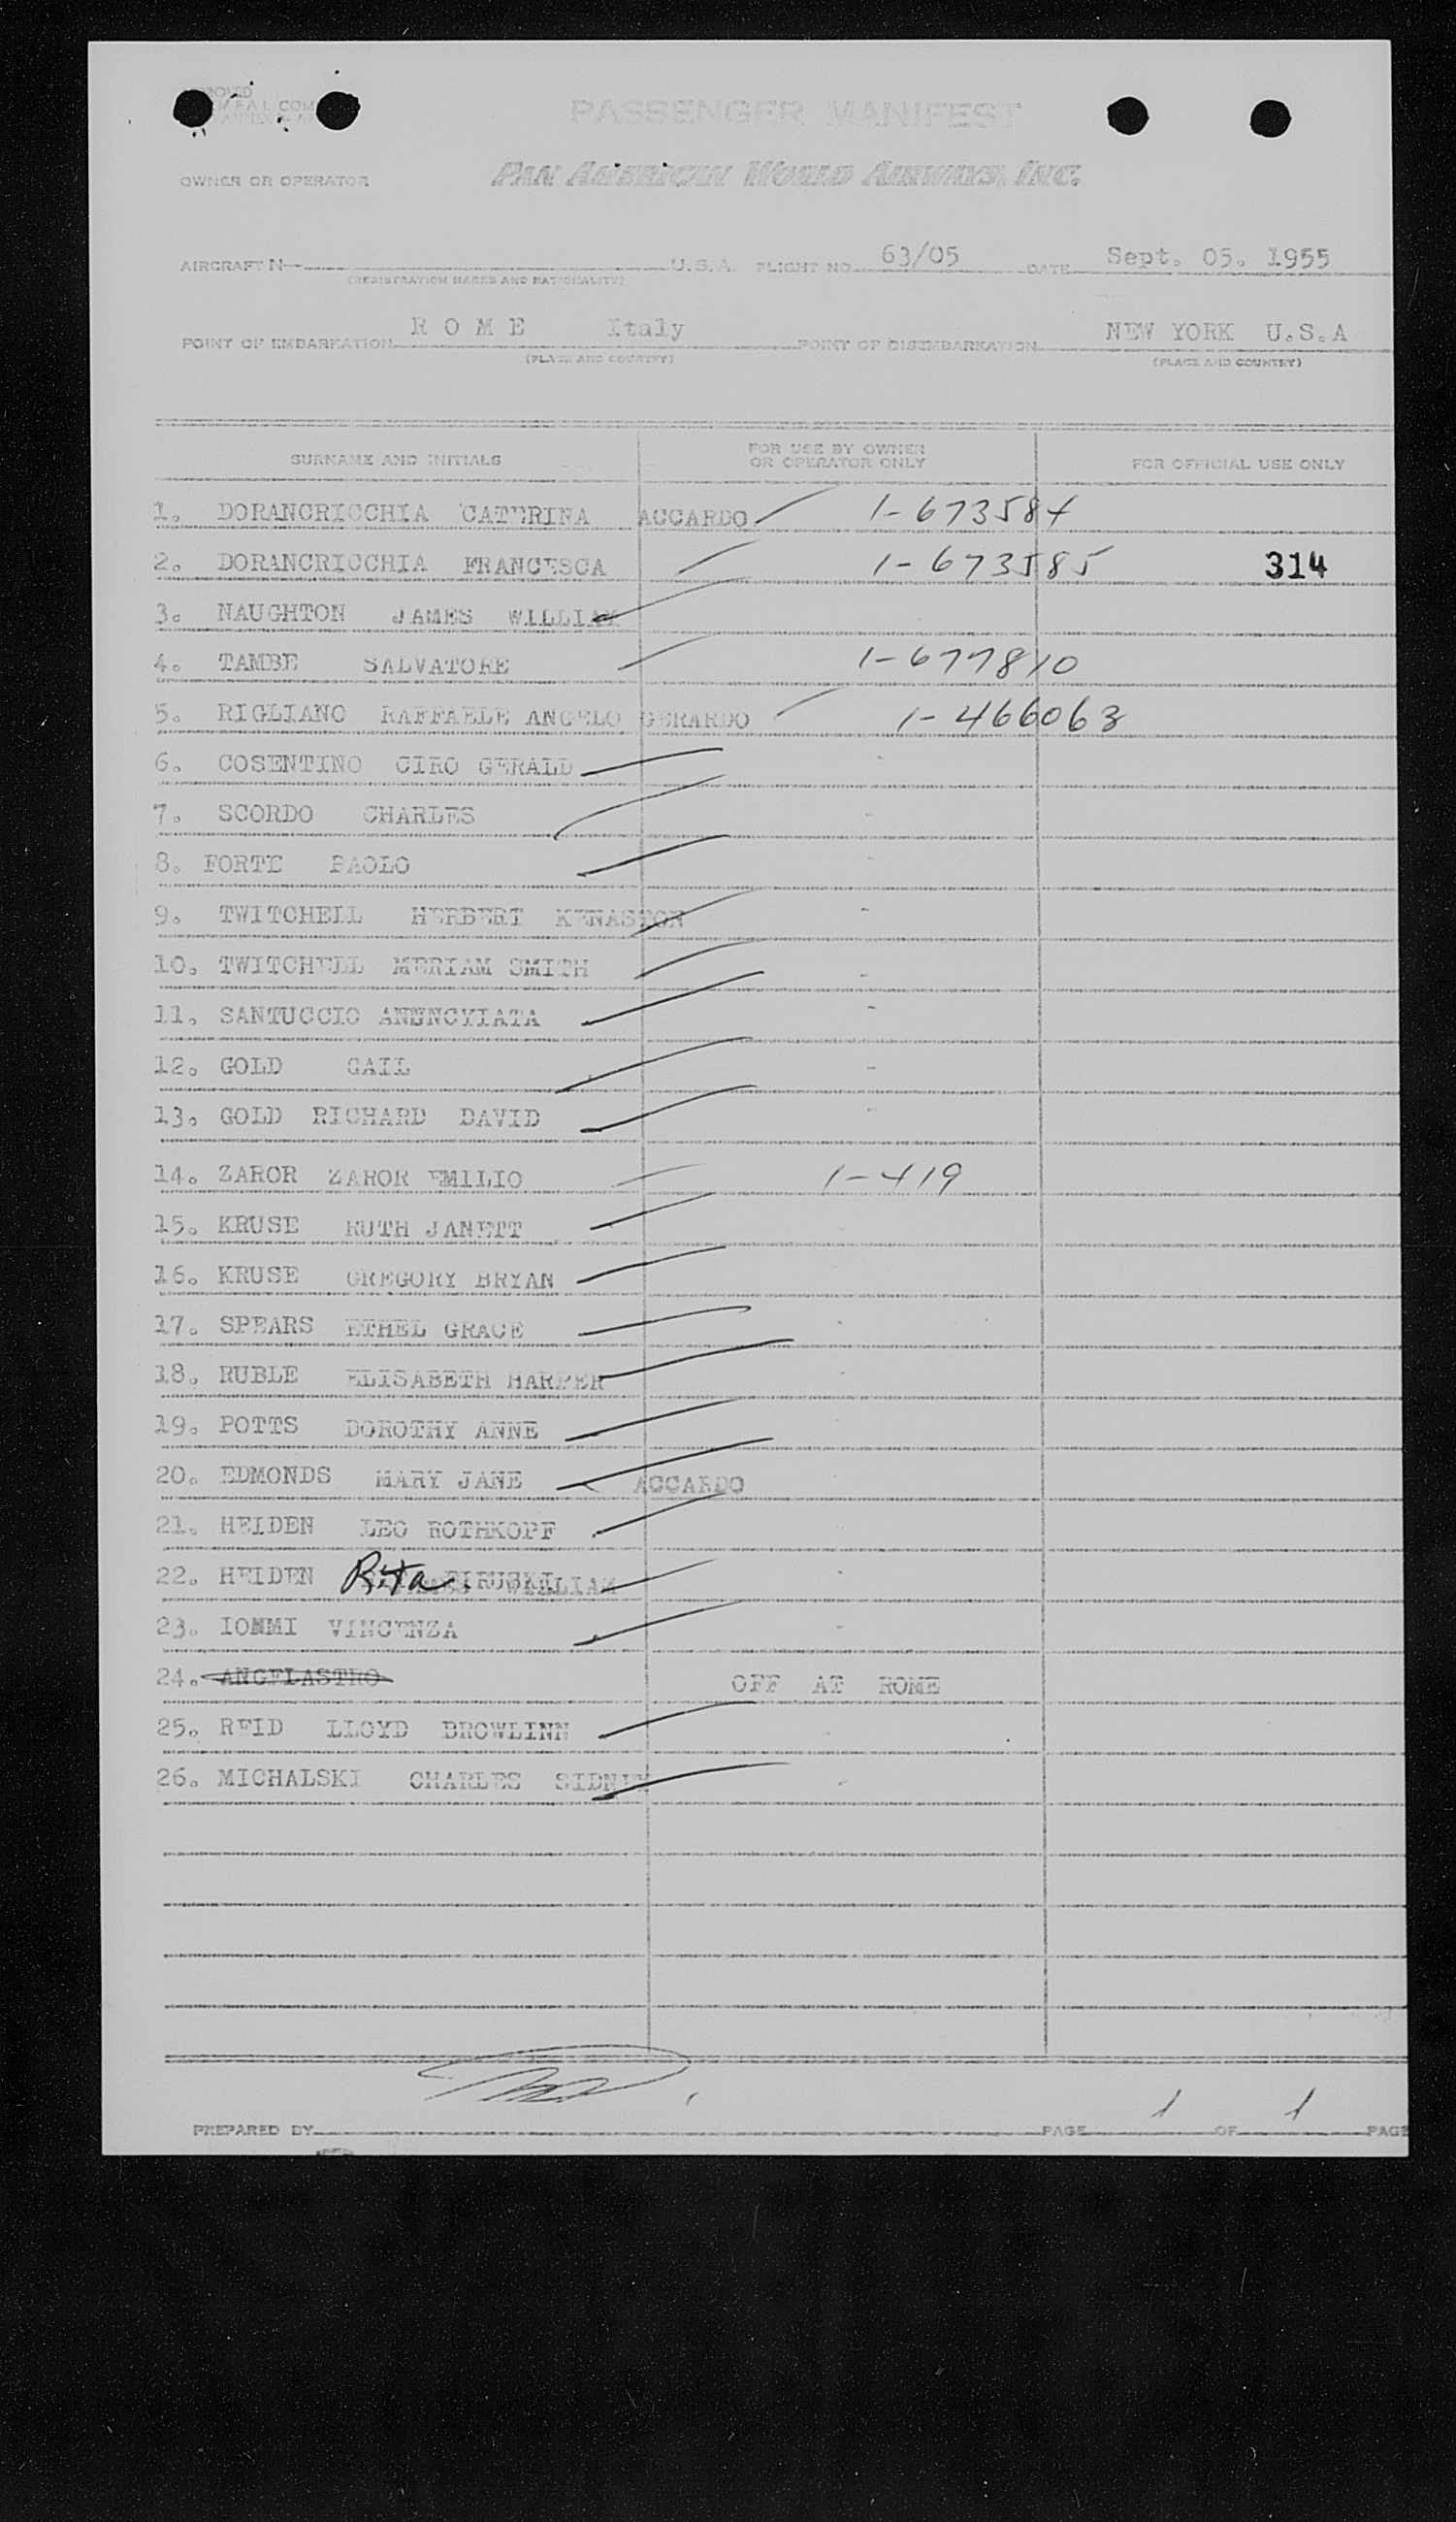 PASSENGER MANIFEST
OWNER OR OPERATOR PAN AMERICAN WORLD AIRWAYS, INC.
AIRCRAFT N- U.S.A. FLIGHT NO. 63/05 DATE Sept. 05. 1955
(REGISTRATION MARKS AND NATIONALITY)
POINT OF EMBARKATION R O M E Italy POINT OF DISEMBARKATION NEW YORK U.S.A
(PLACE AND COUNTRY) (PLACE AND COUNTRY)
SURNAME AND INITIALS FOR USE BY OWNER OR OPERATOR ONLY FOR OFFICIAL USE ONLY
1. DORANCRICCHIA CATERINA ACCARDO 1-673584
2. DORANCRICCHIA FRANCESCA 1-673585 314
3. NAUGHTON JAMES WILLIAM
4. TAMBE SALVATORE 1-677810
5. RIGLIANO RAFFAELE ANGELO GERARDO 1-466063
6. COSENTINO CIRO GERALD
7. SCORDO CHARLES
8. FORTE PAOLO
9. TWITCHELL HERBERT KENASTON
10. TWITCHELL MERIAM SMITH
11. SANTUCCIO
12. GOLD GAIL
13. GOLD RICHARD DAVID
14. ZAROR ZAROR EMILIO 1-419
15. KRUSE RUTH JANETT
16. KRUSE GREGORY BRYAN
17. SPEARS ETHEL GRACE
18. RUBLE ELISABETH HARPER
19. POTTS DOROTHY ANNE
20. EDMONDS MARY JANE ACCARDO
21. HEIDEN LEO ROTHKOPF
22. HEIDEN Rita
23. IOMMI VINCENZA
24. ANGELASTRO OFF AT ROME
25. REID LLOYD BROWLINN
26. MICHALSKI CHARLES SIDNEY
PREPARED BY PAGE 1 OF 1 PAGE